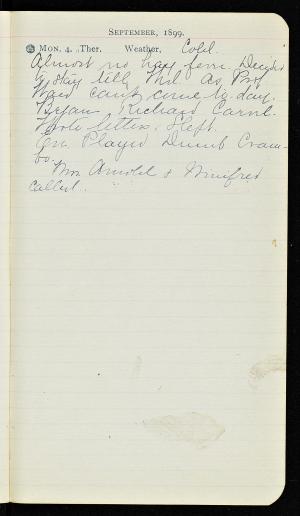 September, 1899.
Mon. 4. Ther. Weather, Cold.
Almost no hay fever. Decided
to stay till Wed as Prof
Ward can't come to-day.
Began Richard Carvel.
Wrote letters. Slept.
Ev. Played Dumb Cram-
bo.
Mrs Arnold & Winifred
called.